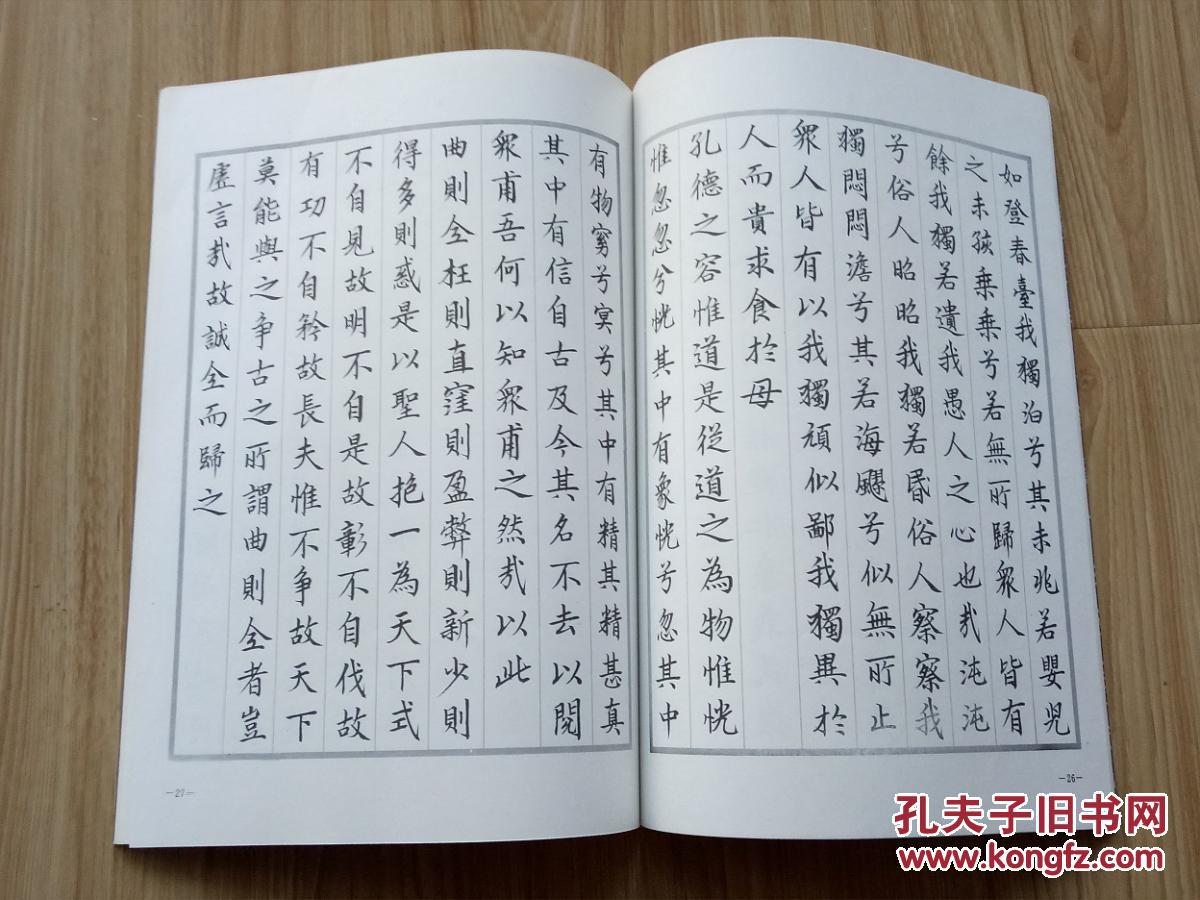 如登春臺我獨泊兮其未兆若嬰児
之未孩乗乗兮若無所歸衆人皆有
餘我獨若遺我愚人之心也哉沌沌
兮俗人昭昭我獨若昏俗人察察我
獨悶悶澹兮其若海飂兮似無所止
衆人皆有以我獨頑似鄙我獨異於
人而貴求食於母
孔德之容惟道是從道之為物惟恍
惟忽忽兮恍其中有象恍兮忽其中
-26-
有物窈兮冥兮其中有精其精甚真
其中有信自古及今其名不去以閱
衆甫吾何以知衆甫之然哉以此
曲則全枉則直窪則盈弊則新少則
得多則惑是以聖人抱一為天下式
不自見故明不自是故彰不自伐故
有功不自矜故長夫惟不争故天下
莫能與之争古之所謂曲則全者豈
虛言哉故誠全而歸之
-27-
孔夫子旧书网
www.kongfz.com